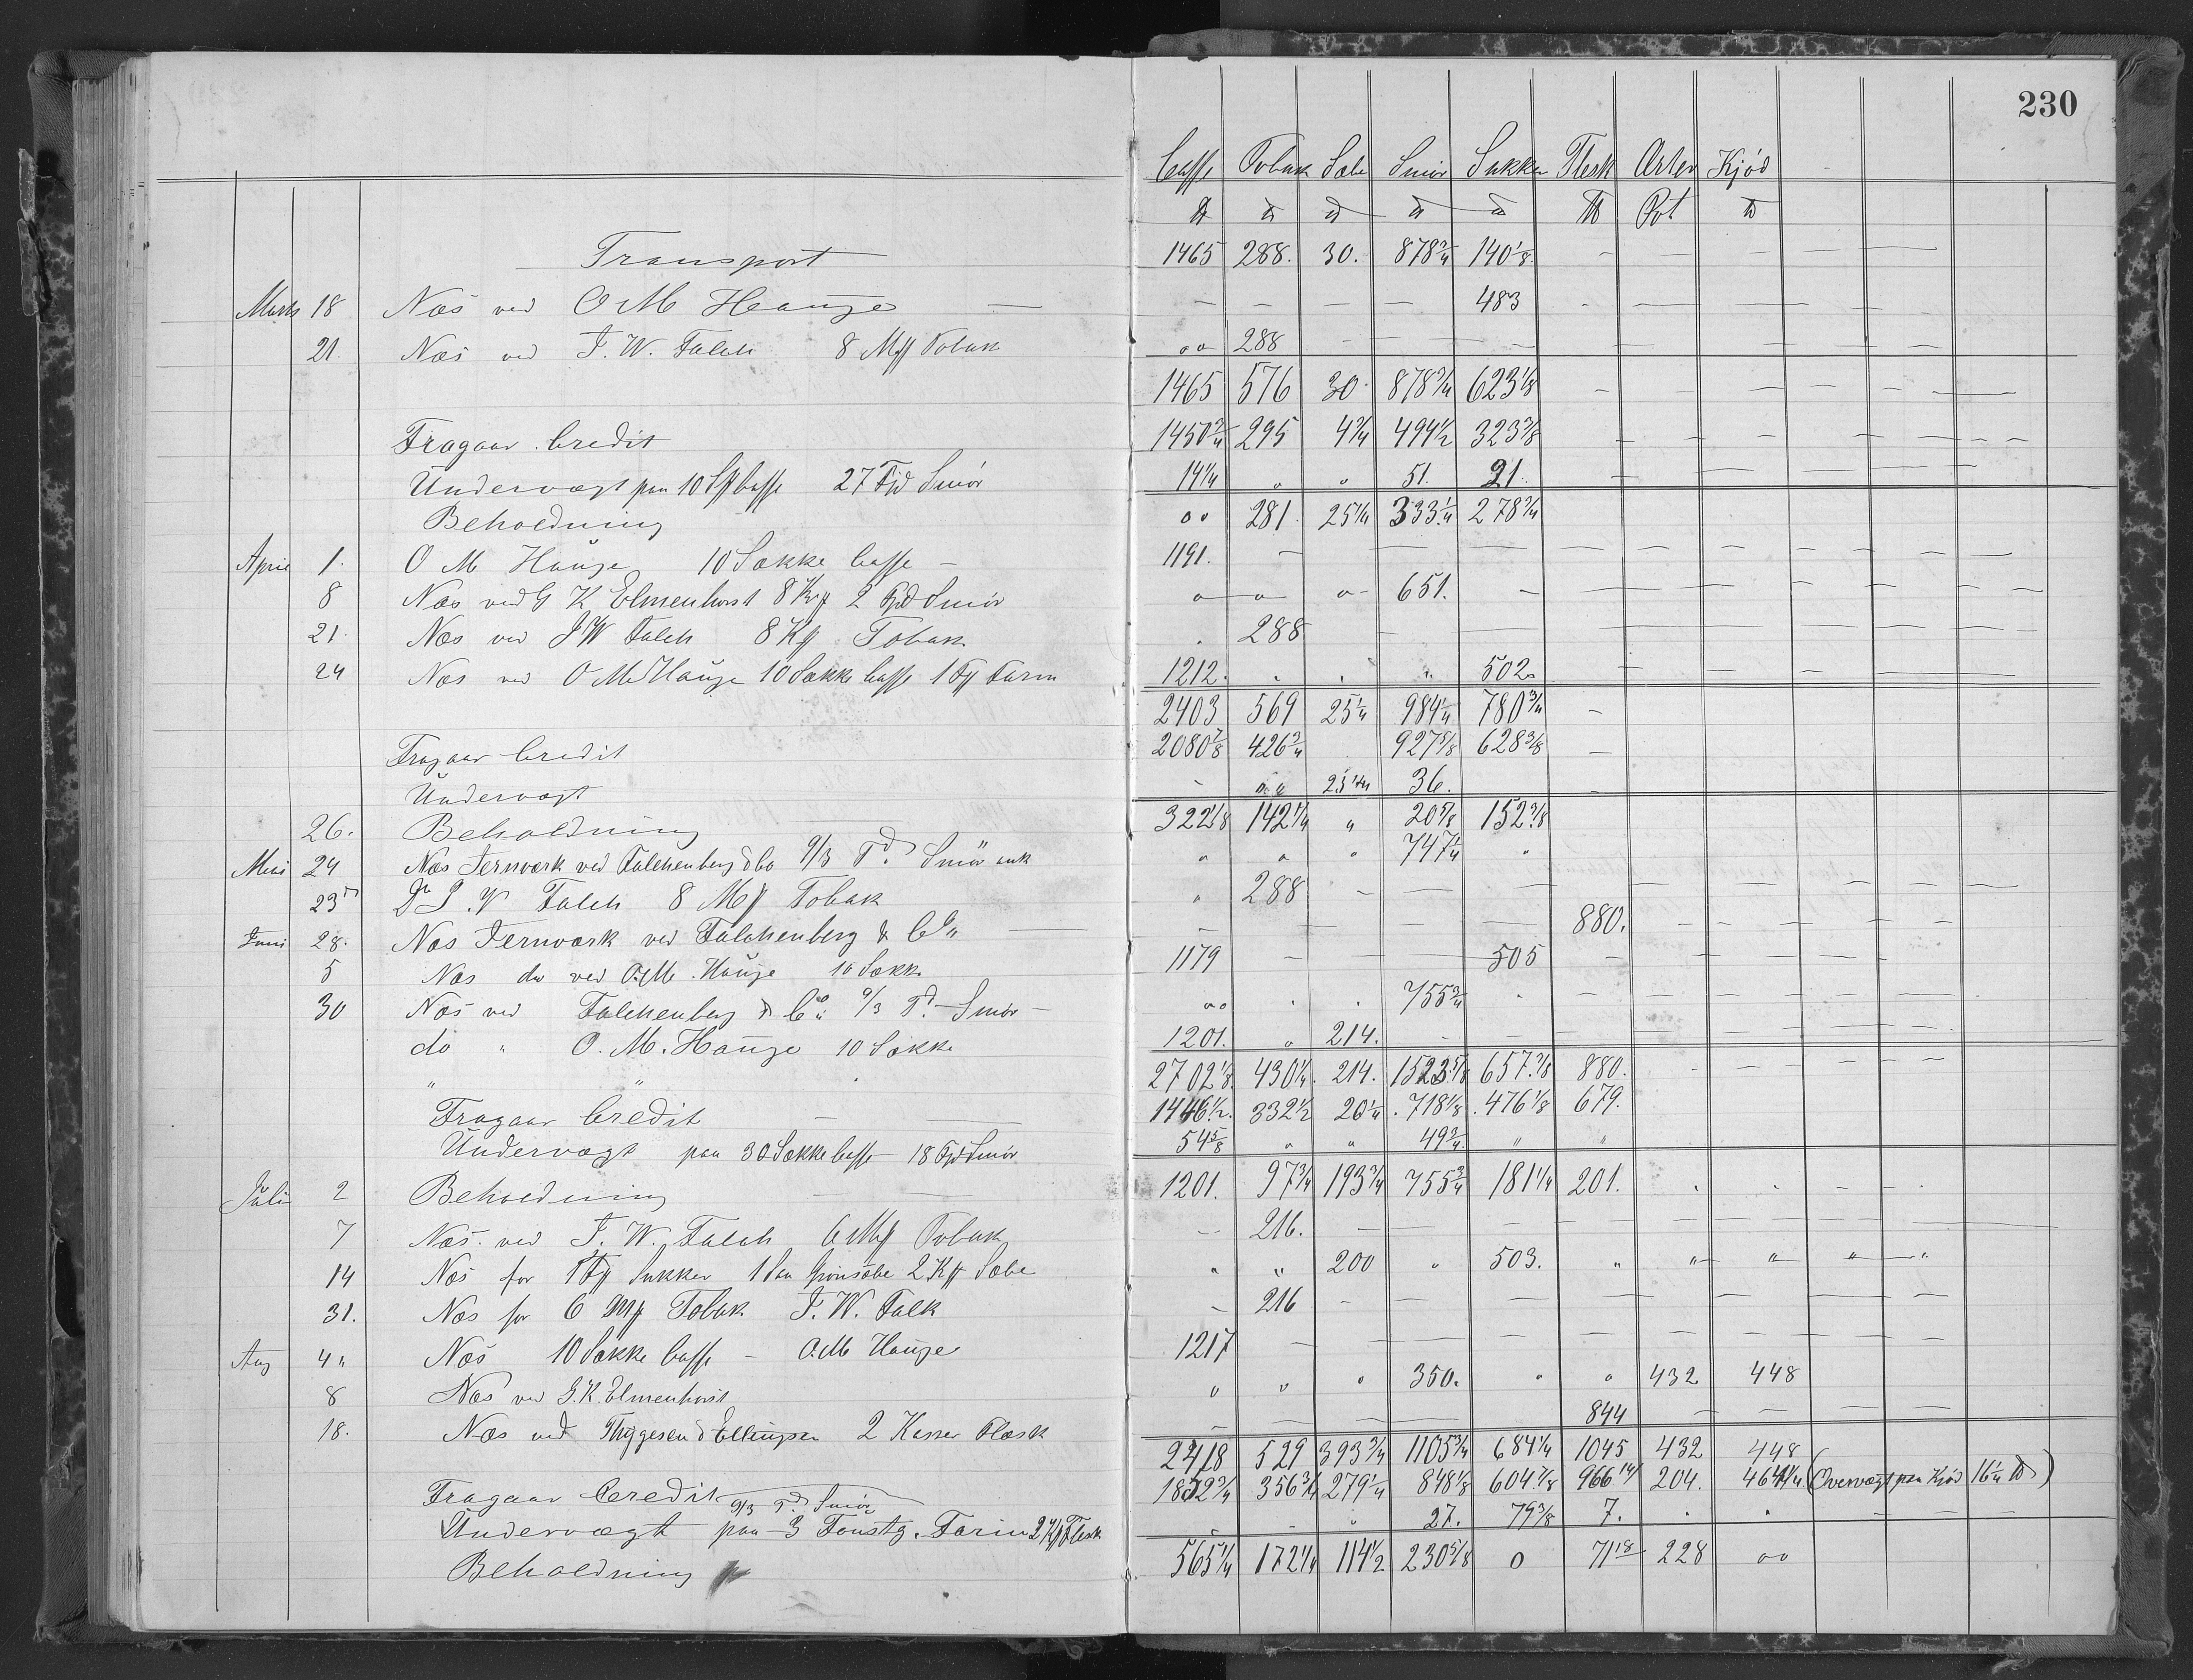 230
Caffe Tobak Sæbe Smör Sukker Flesk Erter Kjöd
℔ ℔ ℔ ℔ ℔ ℔ Pot ℔
Transport 1465 288. 30. 878 3/4 140 1/8
Marts 18 Næs ved O M Hauge 483
21. Næs ved J. W. Falch 8 Tobak 288
1465 576 30 878 3/4 623 1/8
Fragaar Credit 1450 3/4 295 4 3/4 494 1/2 323 3/8
Undervægt paa 10 Caffe 27 Fjd Smör 14 1/4 51. 21.
Beholdning 281 25 1/4 333 1/4 278 3/4
April 1. O M Hauge 10 Sække Caffe 1191.
8 Næs ved G K Elmenhorst 8 2 Fjd Smör 651.
21. Næs ved J W Falch 8 Tobak 288
24 Næs ved O M Hauge 10 Sække Caffe 1 Farin 1212. 502
2403 569 25 1/4 984 1/4 780 3/4
Fragaar Credit 2080 7/8 426 3/4 927 5/8 628 3/8
Undervægt 25 1/4 36.
26. Beholdning 322 1/8 142 1/4 20 5/8 152 3/8
Mai 24 Næs Jernværk ved Falchenberg & Co 9/3 Td. Smör 747 1/4
23 J. W Falch 8 Tobak 288
Juni 28. Næs Jernværk ved Falchenberg & Co 880.
5 Næs do ved O.M. Hauge 10 Sække 1179 505
30 Næs ved Falchenberg & Co 9/3 Td. Smör 755 3/4
do " O. M. Hauge 10 Sække 1201. 214.
" " 2702 1/8 430 1/4 214. 1523 5/8 657 3/8 880.
Fragaar Credit 1446 1/2 332 1/2 20 1/4 718 1/8 476 1/8 679.
Undervægt paa 30 Sække Caffe 18 Fjd Smör 54 5/8 49 3/4
Juli 2 Beholdning 1201. 97 3/4 193 3/4 755 3/4 181 1/4 201.
7 Næs. ved J. W. Falch 6 Tobak 216.
14 Næs for 1 Sukker 1 Grönsæbe 2 Sæbe 200 503.
31. Næs for 6 Tobak J. W. Falk 216
Aug 4 Næs 10 Sække Caffe - O.M Hauge 1217
8 Næs ved G. K. Elmenhorst 350. 432 448
18. Næs ved Thygesen & Ellingsen 2 Kasser Flæsk 844
2418 529 393 3/4 1105 3/4 684 1/4 1045 432 448
Fragaar Credit 1852 3/4 356 3/4 279 1/4 848 1/8 604 7/8 966 14/ 204. 464 1/4 (Overvægt paa Kjöd 16 1/4 ℔)
9/3 Td. Smör
Undervægt paa 3 Farin 2 Flesk 27. 79 3/8 7.
Beholdning 565 1/4 172 1/4 114 1/2 230 5/8 0 71 18 228